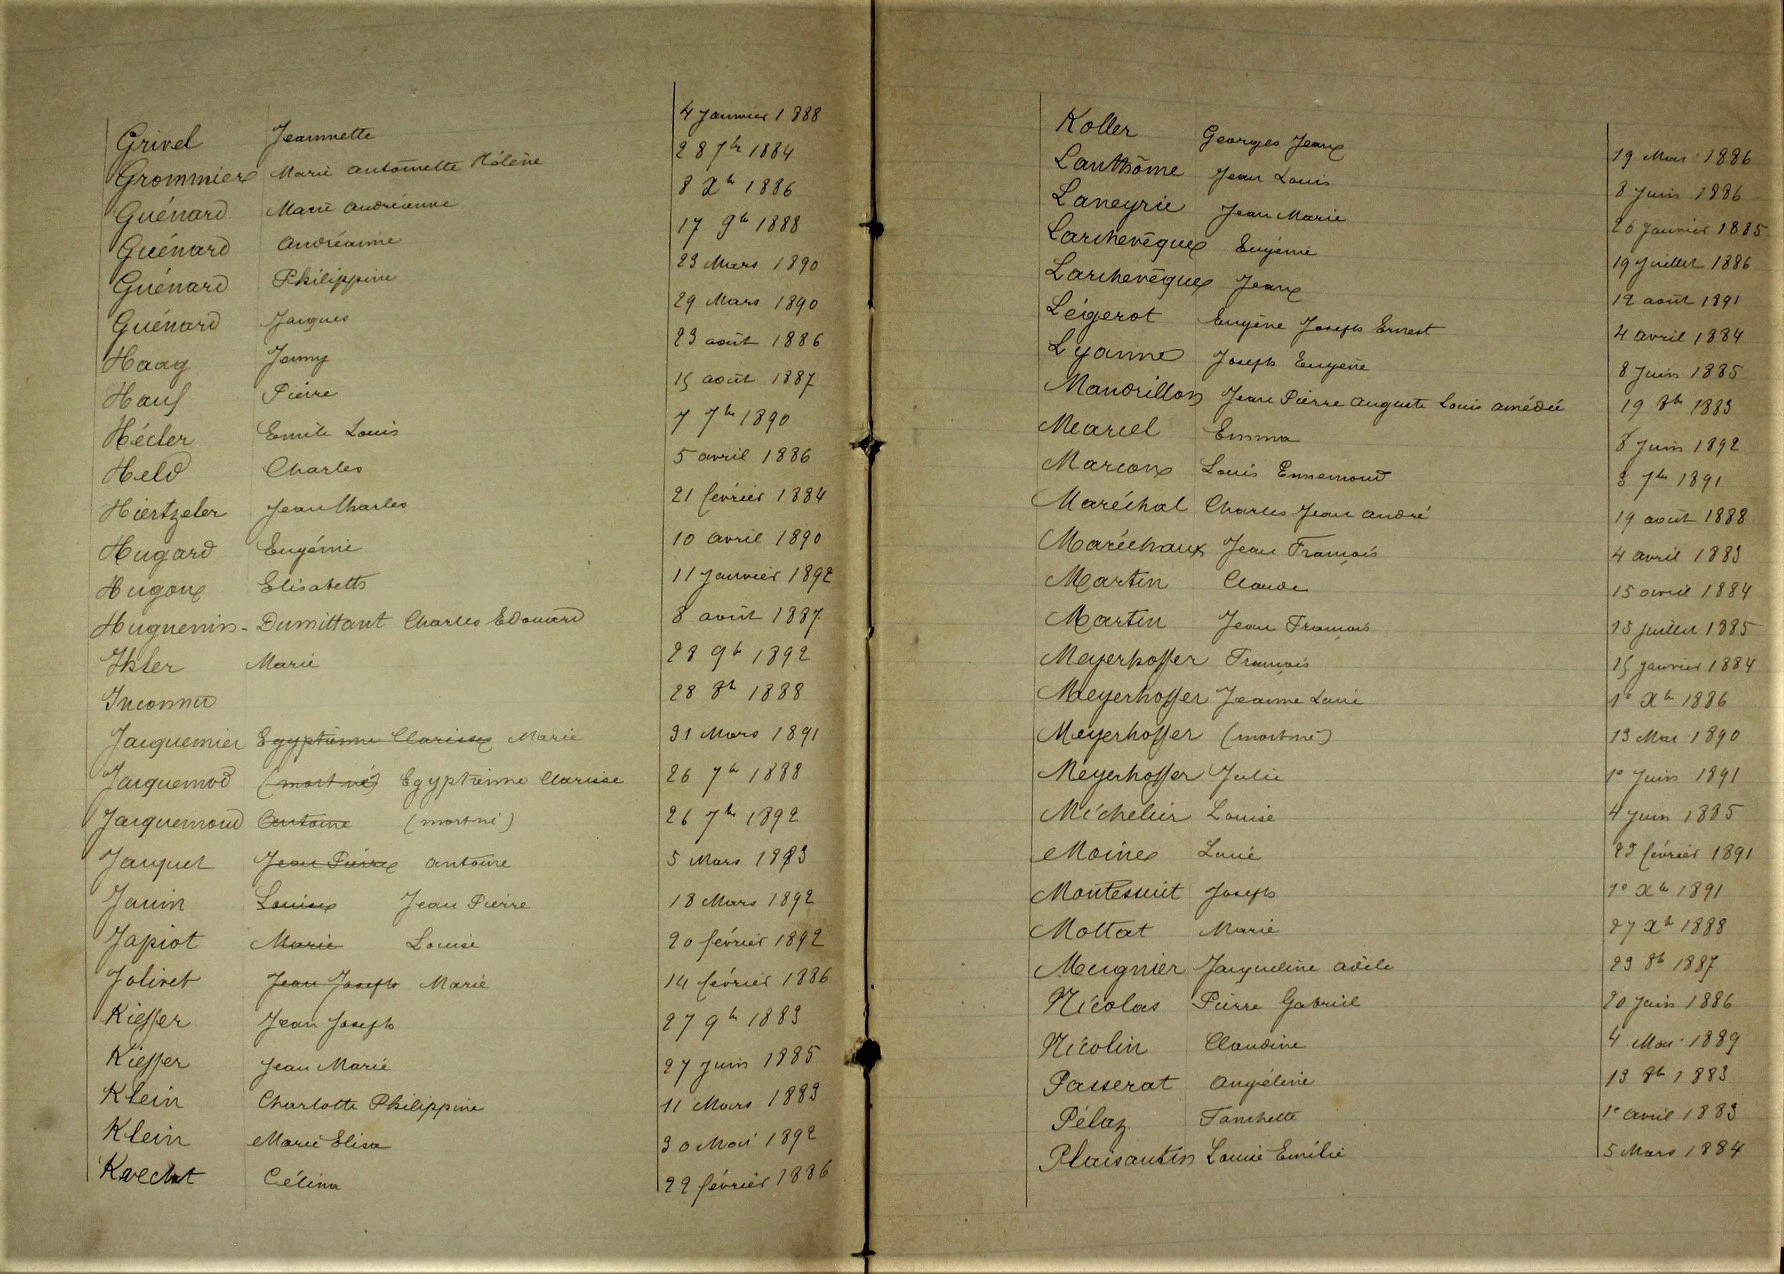 Grivel Jeannette 4 Janvier 1888
Grommier Marie Antoinette Hélène 28 7bre 1884
Guénard Marie Andréanne 8 Xbre 1886
Guénard Andréanne 17 9bre 1888
Guénard Philippine 23 Mars 1890
Guénard Jacques 29 Mars 1890
Haag Jenny 23 août 1886
Hauf Pierre 15 août 1887
Hécler Emile Louis 7 7bre 1890
Held Charles 5 avril 1886
Hiertzeler Jean Charles 21 février 1884
Hugard Eugénie 10 avril 1890
Hugon Elisabeth 11 Janvier 1892
Huguenin-Dumittant Charles Edouard 8 août 1887
Ikler Marie 28 9bre 1892
Inconnu 28 8bre 1888
Jacquemier Egyptienne Clarisse Marie 31 Mars 1891
Jacquemod (mort né) Egyptienne Clarisse 26 7bre 1888
Jacquemoud Antoine (mort né) 26 7bre 1892
Jacquet Jean Pierre Antoine 5 Mars 1883
Janin Louise Jean Pierre 18 Mars 1892
Japiot Marie Louise 20 février 1892
Jolivet Jean Joseph Marie 14 février 1886
Kieffer Jean Joseph 27 9bre 1883
Kieffer Jean Marie 27 Juin 1885
Klein Charlotte Philippine 11 Mars 1883
Klein Marie Elisa 30 Mai 1892
Knecht Célina 22 février 1886
Koller Georges Jean 19 Mai 1886
Lanthôme Jean Louis 8 Juin 1886
Laneyrie Jean Marie 26 Janvier 1885
Larchevêque Eugénie 19 Juillet 1886
Larchevêque Jean 12 août 1891
Légerot Eugène Joseph Ernest 4 avril 1884
Lyanne Joseph Eugène 8 Juin 1885
Mandrillon Jean Pierre Auguste Louis Amédée 19 8bre 1883
Marcel Emma 8 Juin 1892
Marcon Louis Ennemond 3 7bre 1891
Maréchal Charles Jean André 19 août 1888
Maréchaux Jean François 4 avril 1883
Martin Claude 15 avril 1884
Martin Jean François 15 Juillet 1885
Meyerhoffer François 15 Janvier 1884
Meyerhoffer Jeanne Louise 1e Xbre 1886
Meyerhoffer (mort né) 13 Mai 1890
Meyerhoffer Julie 1e Juin 1891
Michelier Louise 4 Juin 1885
Moine Louise 23 février 1891
Montessuit Joseph 1e Xbre 1891
Mottat Marie 27 Xbre 1888
Mugnier Jacqueline Adèle 23 8bre 1887
Nicolas Pierre Gabriel 20 Juin 1886
Nicolin Claudine 4 Mai 1889
Passerat Angéline 13 8bre 1883
Pélaz Fanchette 1e avril 1883
Plaisantin Louise Emilie 5 Mars 1884